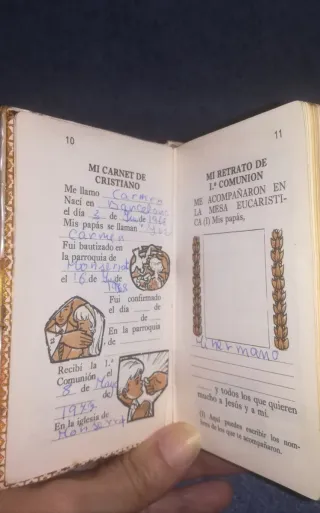 10
MI CARNET DE
CRISTIANO
Me llamo Carmen
Nací en Barcelona
el día 3 de de
Mis papás se llaman
Carmen
Fui bautizado en
la parroquia de
Monserrat
el 16 de de
1968
Fui confirmado
el día de
de
En la parroquia
de
Recibí la 1.ª
Comunión el
8 de Mayo
de
En la iglesia de
Monserrat
11
MI RETRATO DE
1.ª COMUNION
ME ACOMPAÑARON EN
LA MESA EUCARISTI-
CA (I) Mis papás,
hermano
y todos los que quieren
mucho a Jesús y a mí.
(I) Aquí puedes escribir los nom-
bres de los que te acompañaron.